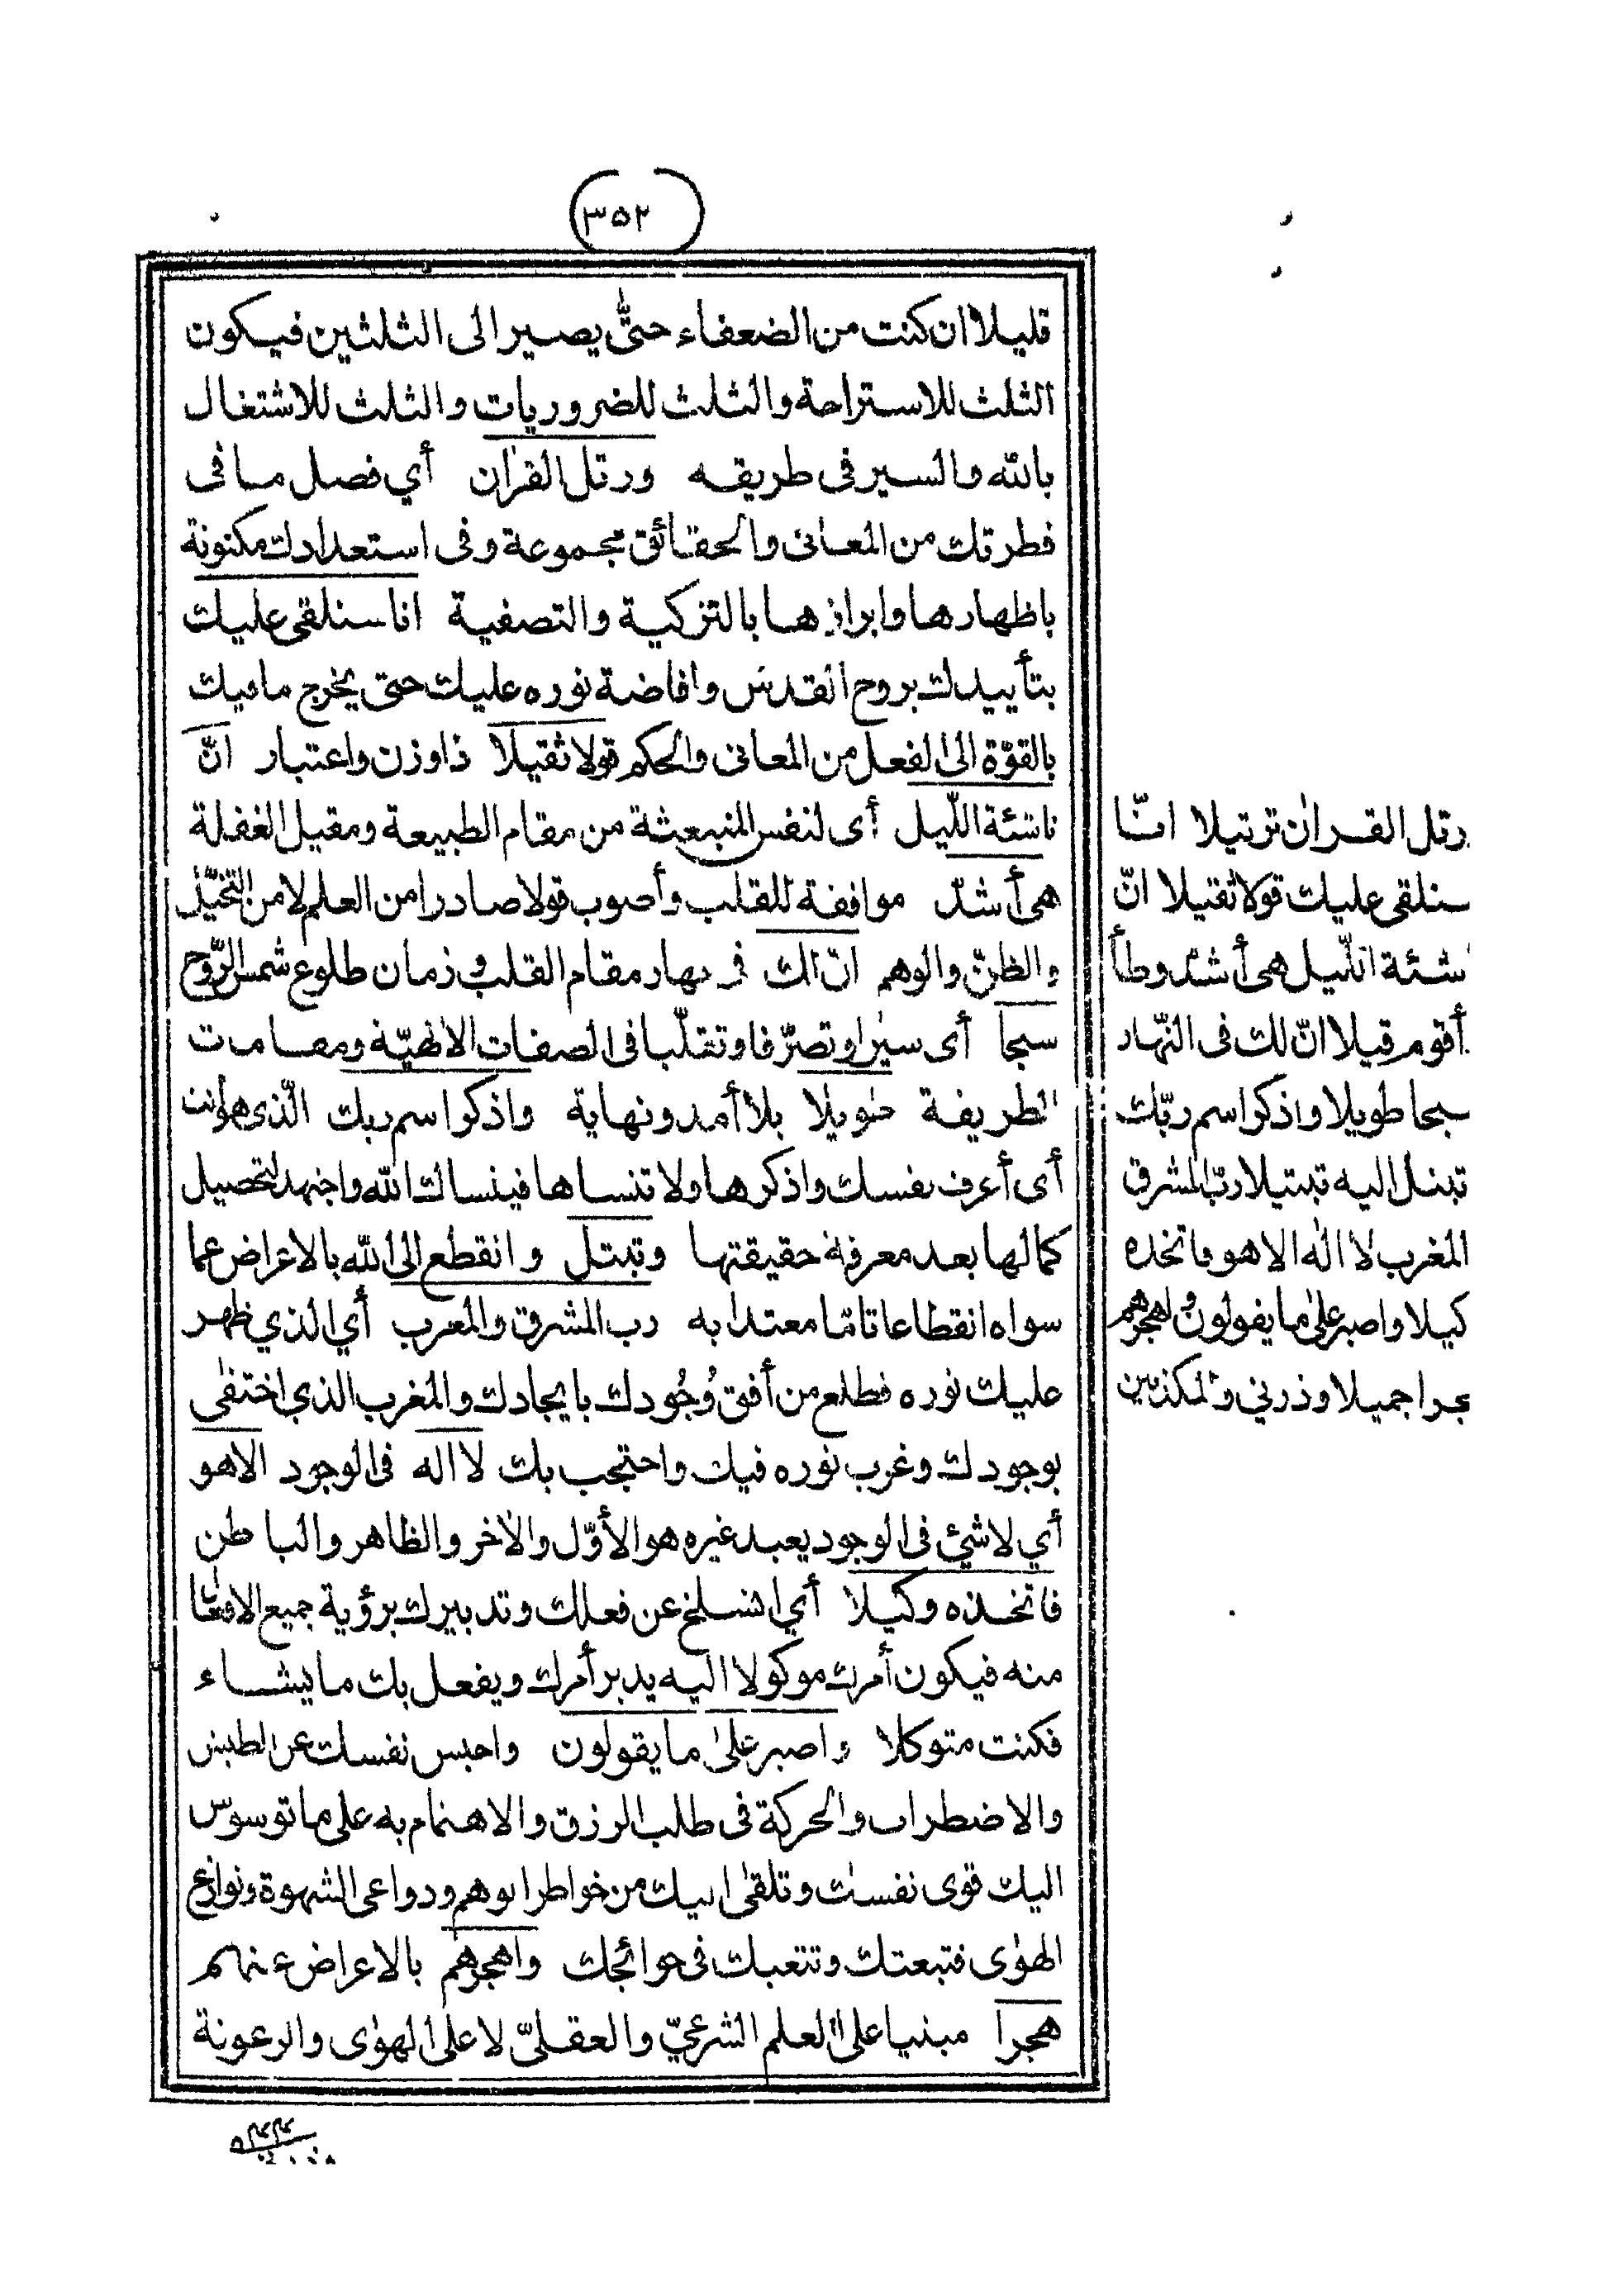 ٣٥٢
قليلا ان كنت من الضعفاء حتّٰى يصير الى الثلثين فيكون
الثلث للاستراحة والثلث للضروريات والثلث للاشتغال
بالله والسير فى طريقه ورتل القرآن أي فصل ما فى
فطرتك من المعانى والحقائق مجموعة وفى استعدادك مكنونة
باظهارها وابرازها بالتزكية والتصفية انا سنلقى عليك
بتأييدك بروح القدس وافاضة نوره عليك حتى يخرج ما فيك
بالقوّة الى الفعل من المعانى والحكم قولا ثقيلا ذا وزن واعتبار انّ
ناشئة اللّيل أى لنفس المنبعثة من مقام الطبيعة ومقيل الغفلة
هى أشدّ موافقة للقلب وأصوب قولا صادرا من العلم لا من التخيّل
والظنّ والوهم انّ لك فى نهار مقام القلب وزمان طلوع شمس الرّوح
سبحا أى سيرا وتصرّفا وتقلّبا فى الصفات الالٰهيّة ومقامات
الطريقة طويلا بلا أمد ونهاية واذكر اسم ربك الّذى هو أنت
أى أعرف نفسك واذكرها ولا تنساها فينساك الله واجتهد لتحصيل
كمالها بعد معرفة حقيقتها وتبتل وانقطع الى الله بالاعراض عما
سواه انقطاعا تامّا معتدا به رب المشرق والمغرب أي الذي ظهر
عليك نوره فطلع من أفق وُجُودك بايجادك والمغرب الذي اختفٰى
بوجودك وغرب نوره فيك واحتجب بك لا اله فى الوجود الا هو
أي لا شيئ فى الوجود يعبد غيره هو الأوّل والآخر والظاهر والباطن
فاتخذه وكيلا أي انسلخ عن فعلك وتدبيرك برؤية جميع الافعال
منه فيكون أمرك موكولا اليه يدبر أمرك ويفعل بك ما يشاء
فكنت متوكلا واصبر علىٰ ما يقولون واحبس نفسك عن الطيش
والاضطراب والحركة فى طلب الرزق والاهتمام به على ما توسوس
اليك قوى نفسك وتلقى اليك من خواطر الوهم ودواعى الشهوة ونوازع
الهوٰى فتبعتك وتتعبك فى حوائجك واهجرهم بالاعراض عنهم
هجرا مبنيا على العلم الشرعيّ والعقلىّ لا على الهوٰى والرعونة
رتل القرآن ترتيلا انّا
سنلقى عليك قولا ثقيلا انّ
شئة اللّيل هى أشدّ وطأ
أقوم قيلا انّ لك فى النّهار
سبحا طويلا واذكر اسم ربّك
تبتل اليه تبتيلا ربّ المشرق
المغرب لا الٰه الا هو فاتخذه
كيلا واصبر علىٰ ما يقولون واهجرهم
جرا جميلا وذرني والمكذبين